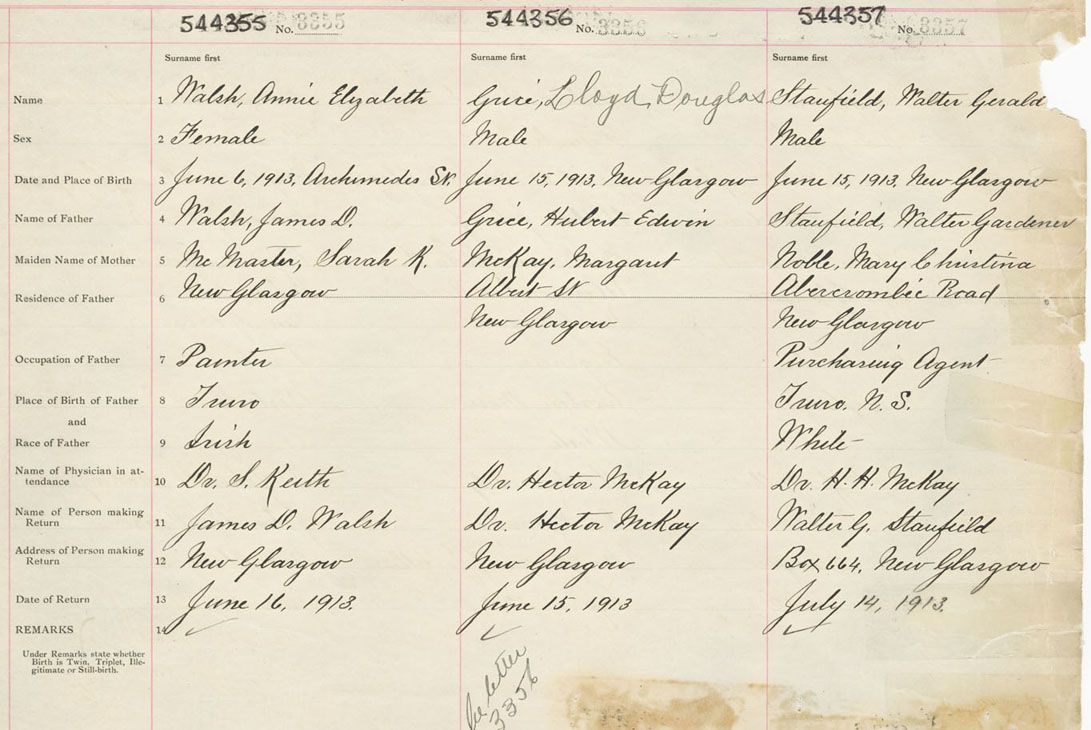 544355 No. 3355 544356 No. 3356 544357 No. 3357
Surname first Surname first Surname first
Name 1 Walsh, Annie Elizabeth Grice, Lloyd Douglas Stanfield, Walter Gerald
Sex 2 Female Male Male
Date and Place of Birth 3 June 6, 1913, Archimedes St. June 15, 1913, New Glasgow June 15, 1913, New Glasgow
Name of Father 4 Walsh, James D. Grice, Hubert Edwin Stanfield, Walter Gardener
Maiden Name of Mother 5 McMaster, Sarah K. McKay, Margaret Noble, Mary Christina
Residence of Father 6 New Glasgow Albert St Abercrombie Road
New Glasgow New Glasgow
Occupation of Father 7 Painter Purchasing Agent
Place of Birth of Father 8 Truro Truro. N. S.
and
Race of Father 9 Irish White
Name of Physician in at-
tendance 10 Dr. S. Keith Dr. Hector McKay Dr. H. H. McKay
Name of Person making
Return 11 James D. Walsh Dr. Hector McKay Walter G. Stanfield
Address of Person making
Return 12 New Glasgow New Glasgow Box 664, New Glasgow
Date of Return 13 June 16, 1913. June 15, 1913 July 14, 1913.
REMARKS 14
Under Remarks state whether
Birth is Twin, Triplet, Ille-
gitimate or Still-birth.
See letter
3356